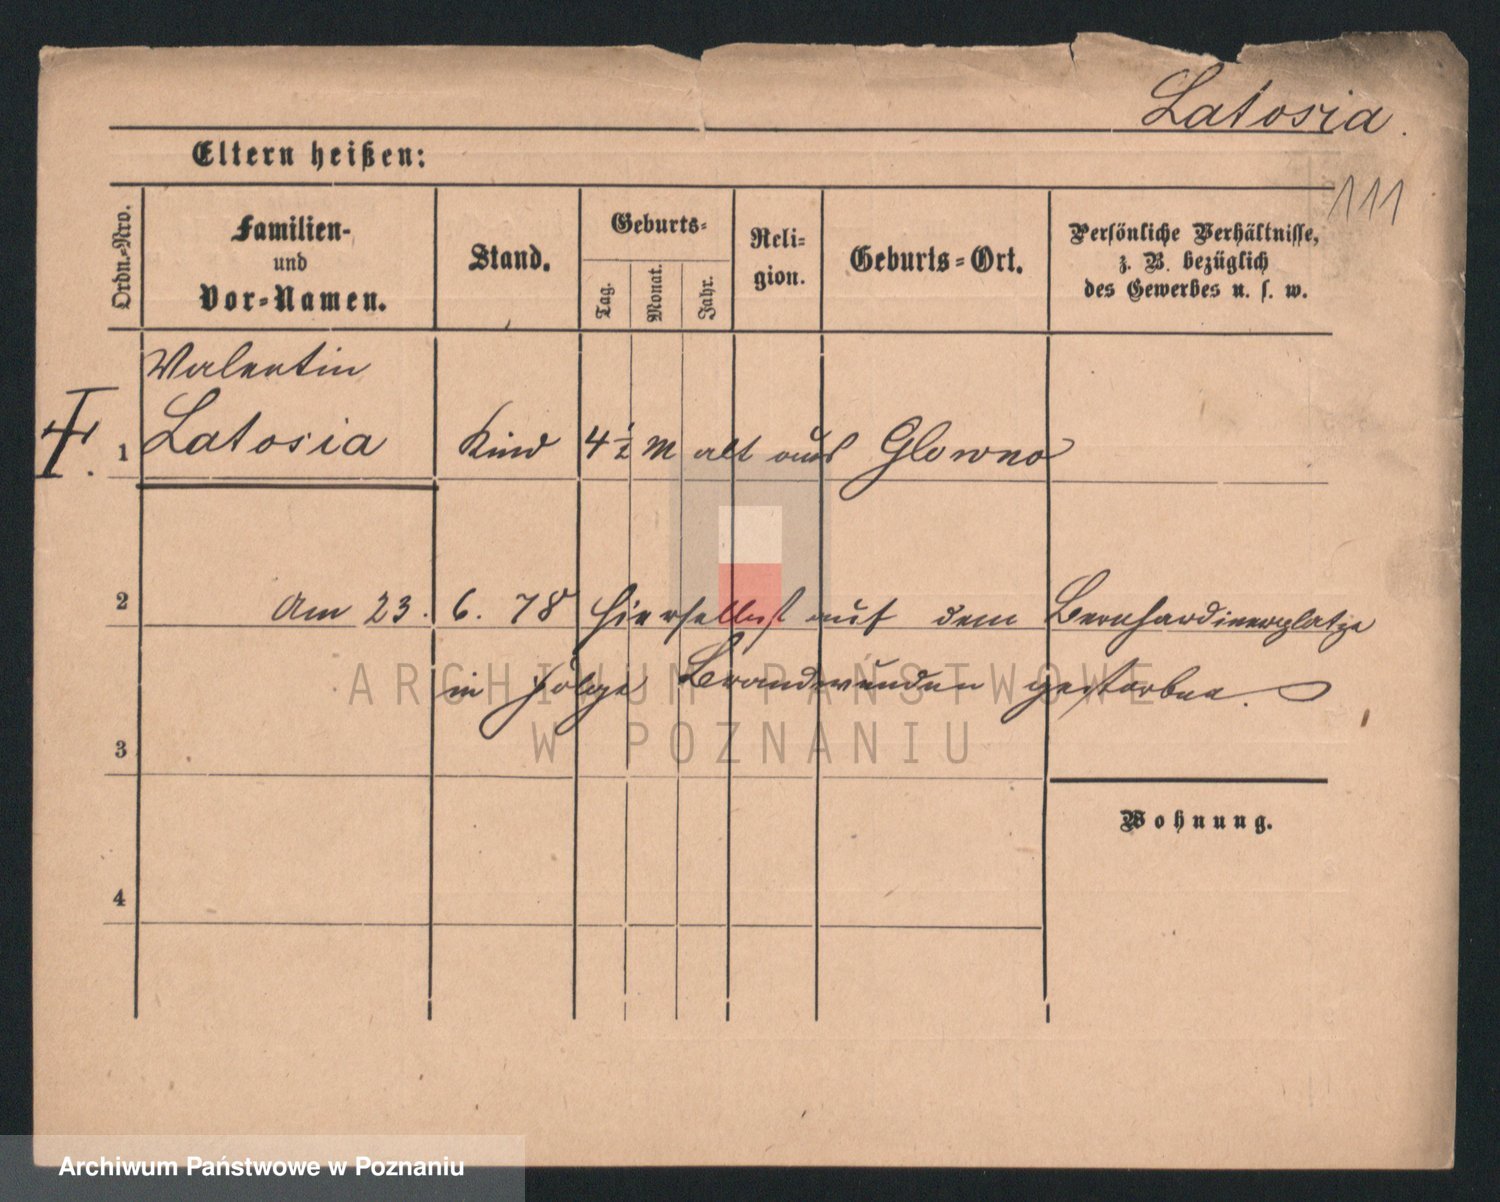 Latosia.
Eltern heißen:
111
Ordn.-Nro.
Familien-
und
Vor-Namen.
Stand.
Geburts-
Tag.
Monat.
Jahr.
Reli-
gion.
Geburts-Ort.
Persönliche Verhältnisse,
z. B. bezüglich
des Gewerbes u. s. w.
Valentin
1 Latosia Kind 4½ M alt aus Glowno
2 Am 23. 6. 78 hierselbst auf dem Bernhardinerplatze
in Folge Brandwunden gestorben.
ARCHIWUM PAŃSTWOWE
W POZNANIU
3
Wohnung.
4
Archiwum Państwowe w Poznaniu